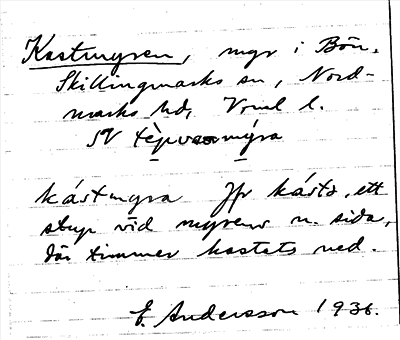 Kastmyren, myr i Bön,
Skillingmarks sn, Nord-
marks hd, Vrml l.
SV
kástmyra Jfr kásta, ett
stup vid myrens n. sida,
där timmer kastats ned.
E. Andersson 1936.